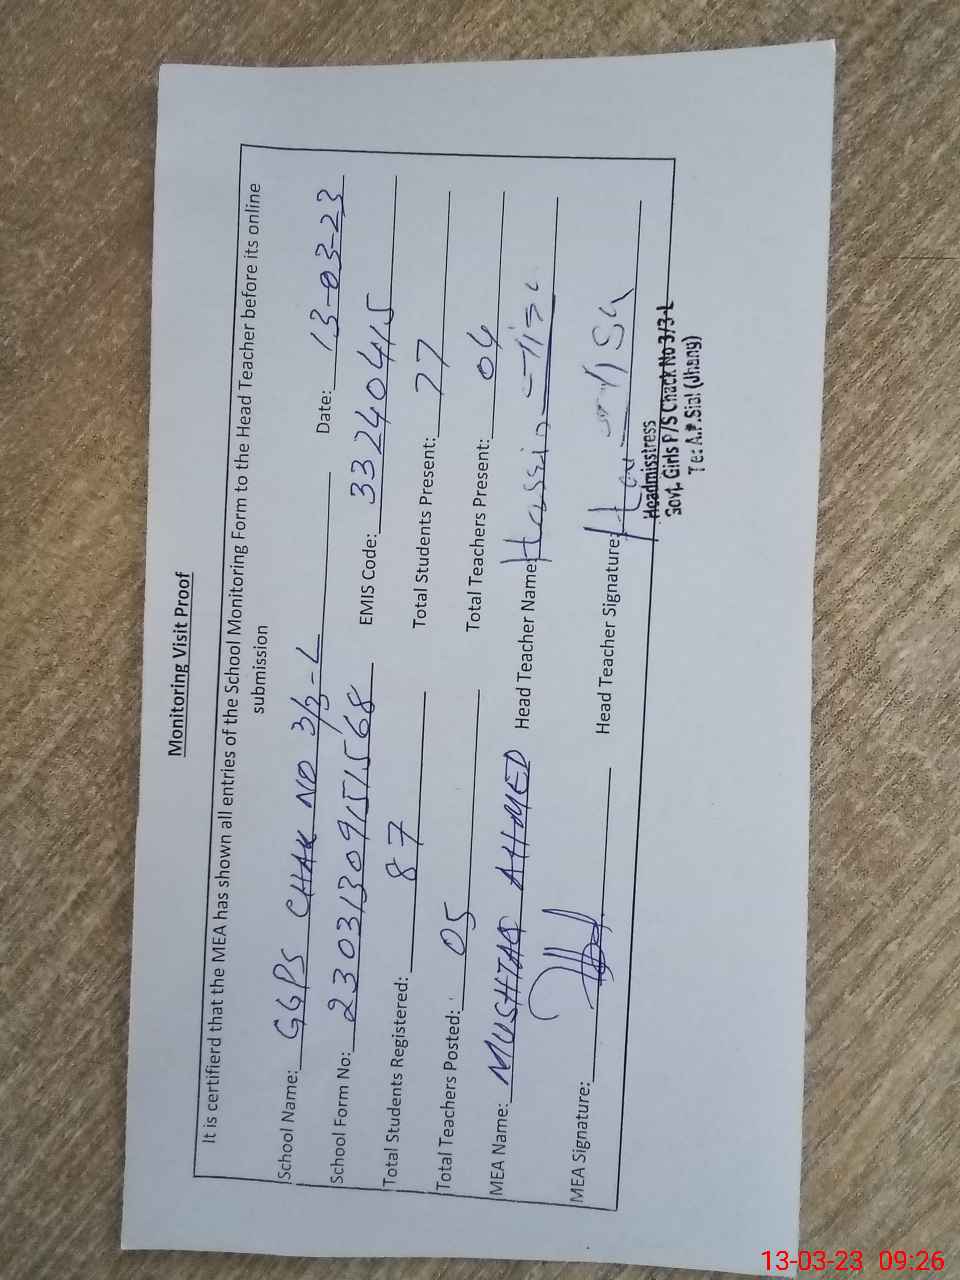 Monitoring Visit Proof
It is certifierd that the MEA has shown all entries of the School Monitoring Form to the Head Teacher before its online
submission
School Name: GGPS CHAK NO 3/3-L Date: 13-03-23
School Form No: 23031309151568 EMIS Code: 33240415
Total Students Registered: 87 Total Students Present: 77
Total Teachers Posted: 05 Total Teachers Present: 04
MEA Name: MUSHTAQ AHMED Head Teacher Name:
MEA Signature: Head Teacher Signature:
Headmisstress
Govt. Girls P/S Chack No 3/3-L
Te: A.P.Sial (Jhang)
13-03-23 09:26